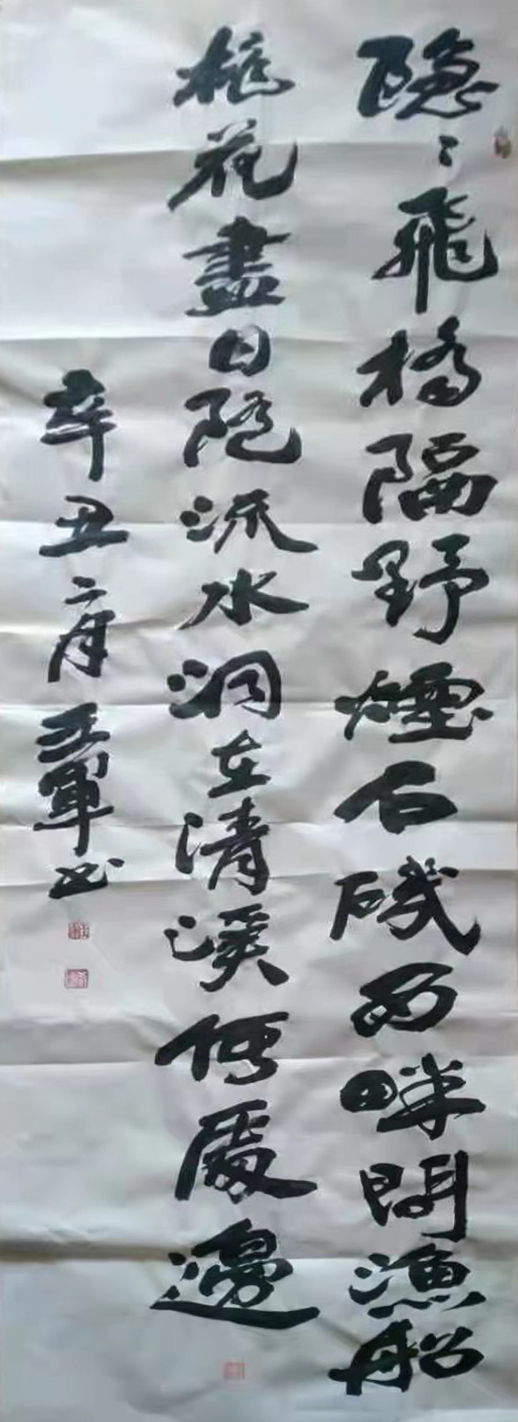 隐〻飛橋隔野煙石磯西畔問漁船
桃花盡日随流水洞在清溪何處邊
辛丑 軍书